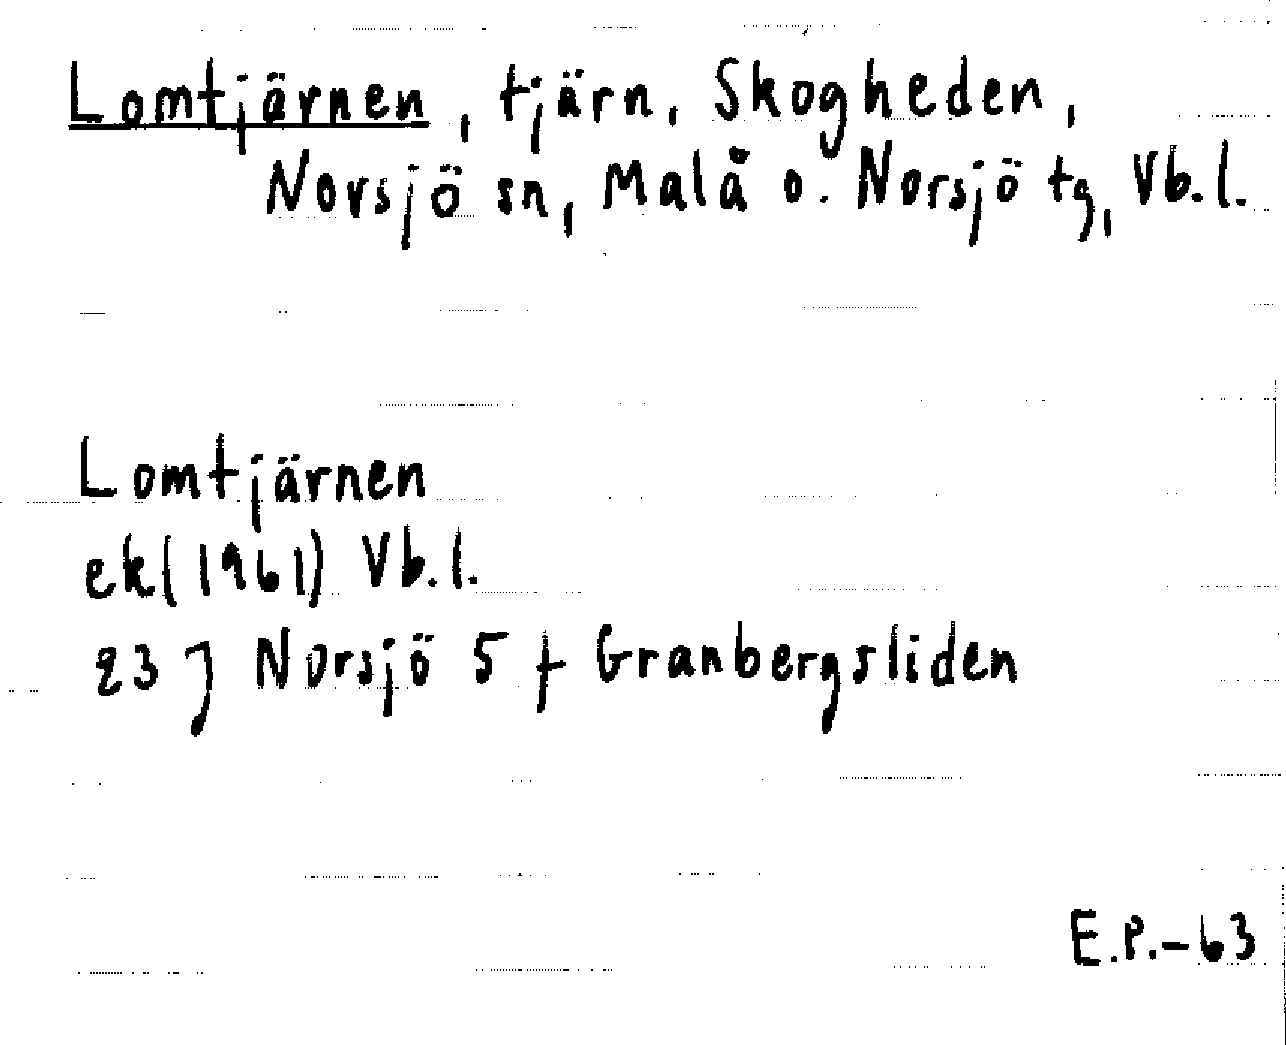 Lomtjärnen, tjärn, Skogheden,
Norsjö sn, Malå o. Norsjö tg, Vb.l.
Lomtjärnen
ek(1961) Vb.l.
23 J Norsjö 5 f Granbergsliden
E.P.-63